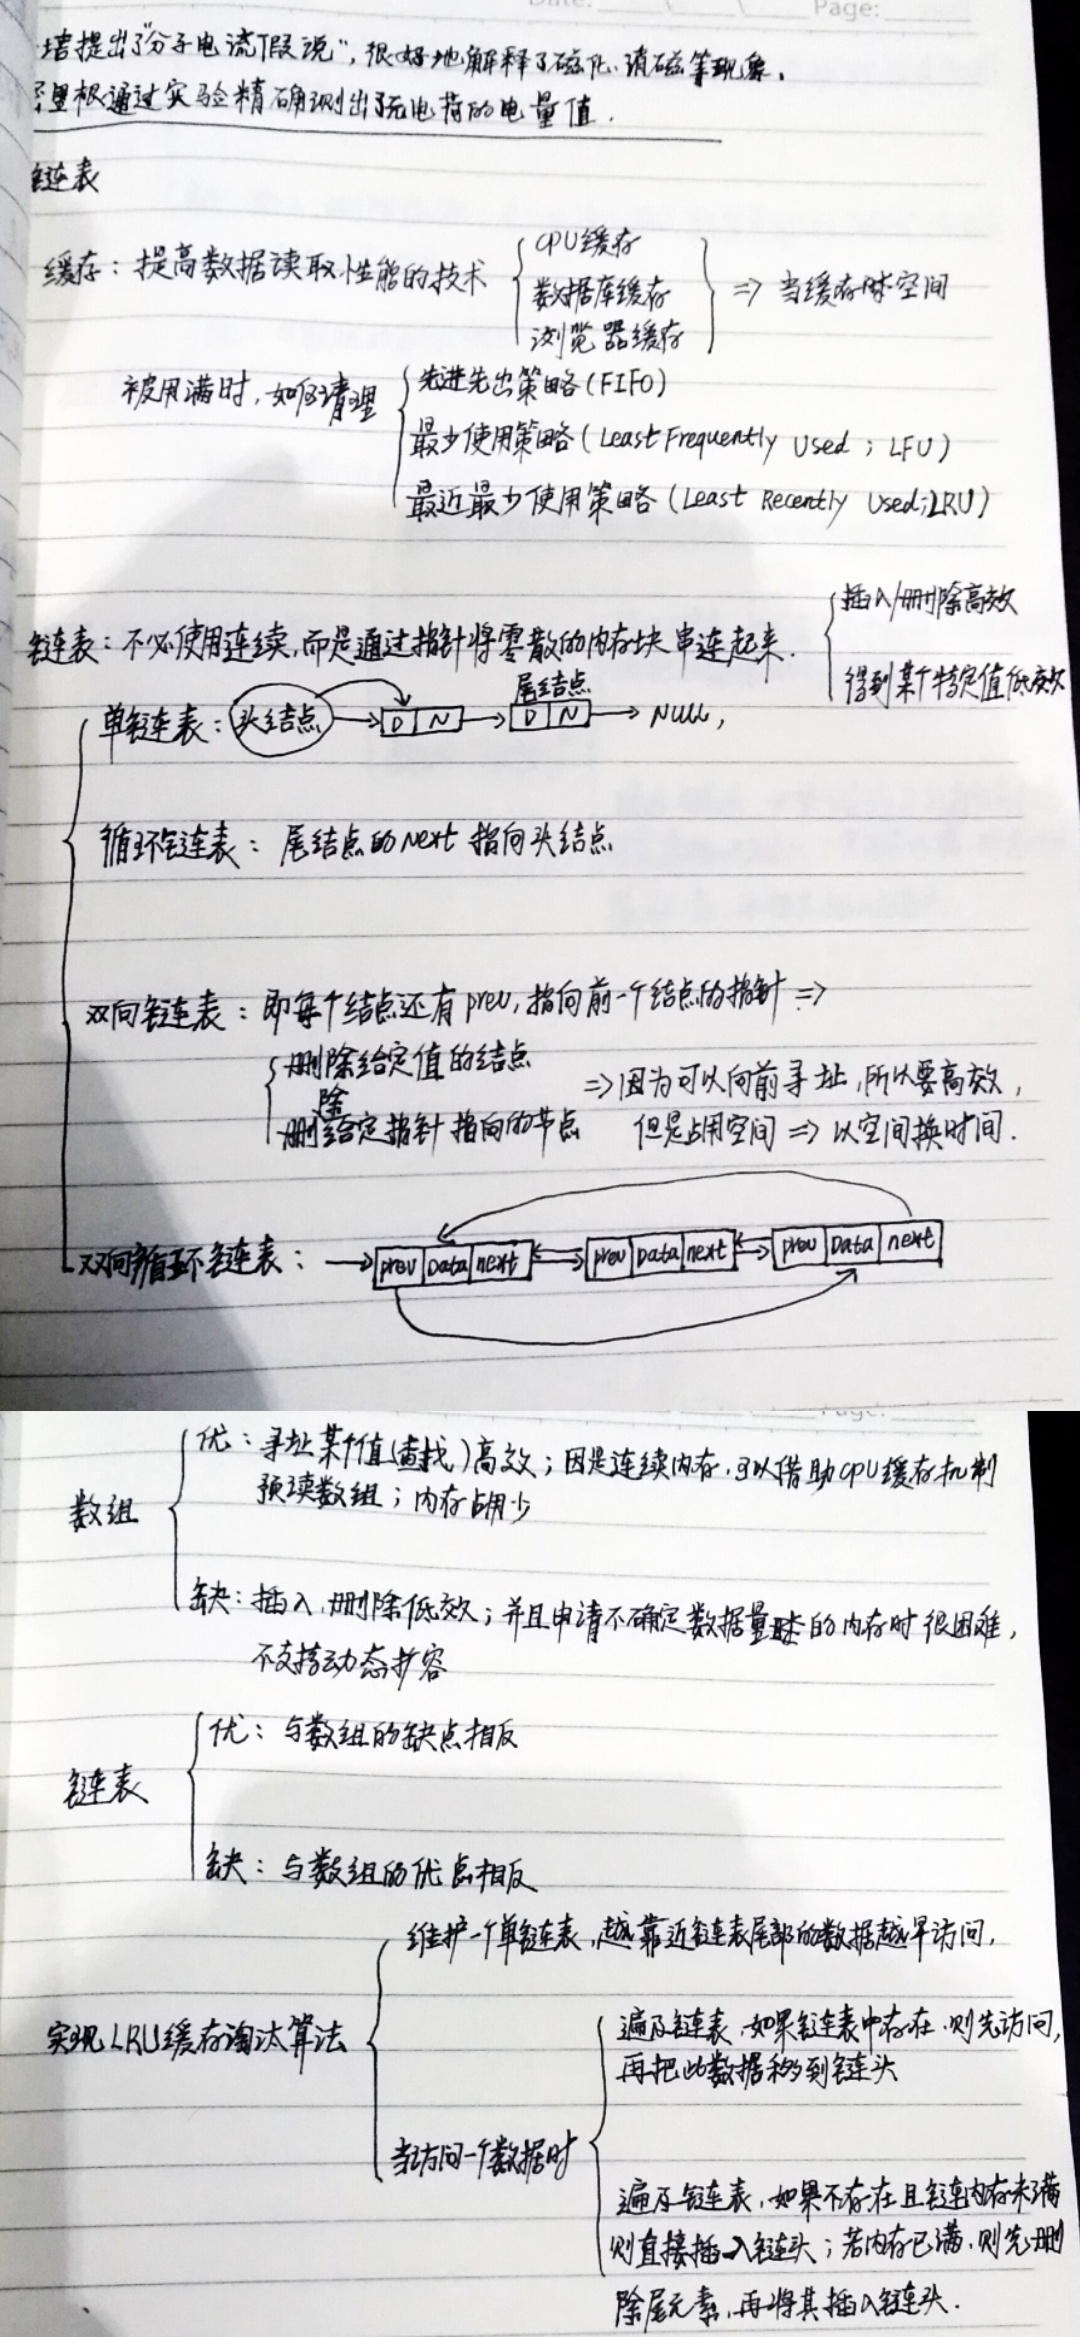 Date: Page:
培提出了"分子电流假说",很好地解释了磁化、消磁等现象.
密里根通过实验精确测出了元电荷的电量值.
链表
缓存：提高数据读取性能的技术
CPU缓存
数据库缓存
浏览器缓存
⇒ 当缓存空间
被用满时,如何清理
先进先出策略(FIFO)
最少使用策略(Least Frequently Used; LFU)
最近最少使用策略(Least Recently Used;LRU)
链表：不必使用连续,而是通过指针将零散的内存块串连起来.
插入/删除高效
得到某个特定值低效
尾结点
单链表：头结点 → D N → D N → NULL,
循环链表：尾结点的next指向头结点
双向链表：即每个结点还有prev,指向前一个结点的指针 ⇒
删除给定值的结点
删除给定指针指向的节点
⇒因为可以向前寻址,所以要高效,
但是占用空间 ⇒ 以空间换时间.
双向循环链表： → prev Data next prev Data next prev Data next
Page:
数组
优：寻址某个值(查找)高效；因是连续内存,可以借助CPU缓存机制
预读数组；内存占用少
缺：插入,删除低效；并且申请不确定数据量的内存时很困难,
不支持动态扩容
链表
优：与数组的缺点相反
缺：与数组的优点相反
实现LRU缓存淘汰算法
维护一个单链表,越靠近链表尾部的数据越早访问,
当访问一个数据时
遍历链表,如果链表中存在,则先访问,
再把此数据移到链头
遍历链表,如果不存在且链内存未满
则直接插入链头；若内存已满,则先删
除尾元素,再将其插入链头.